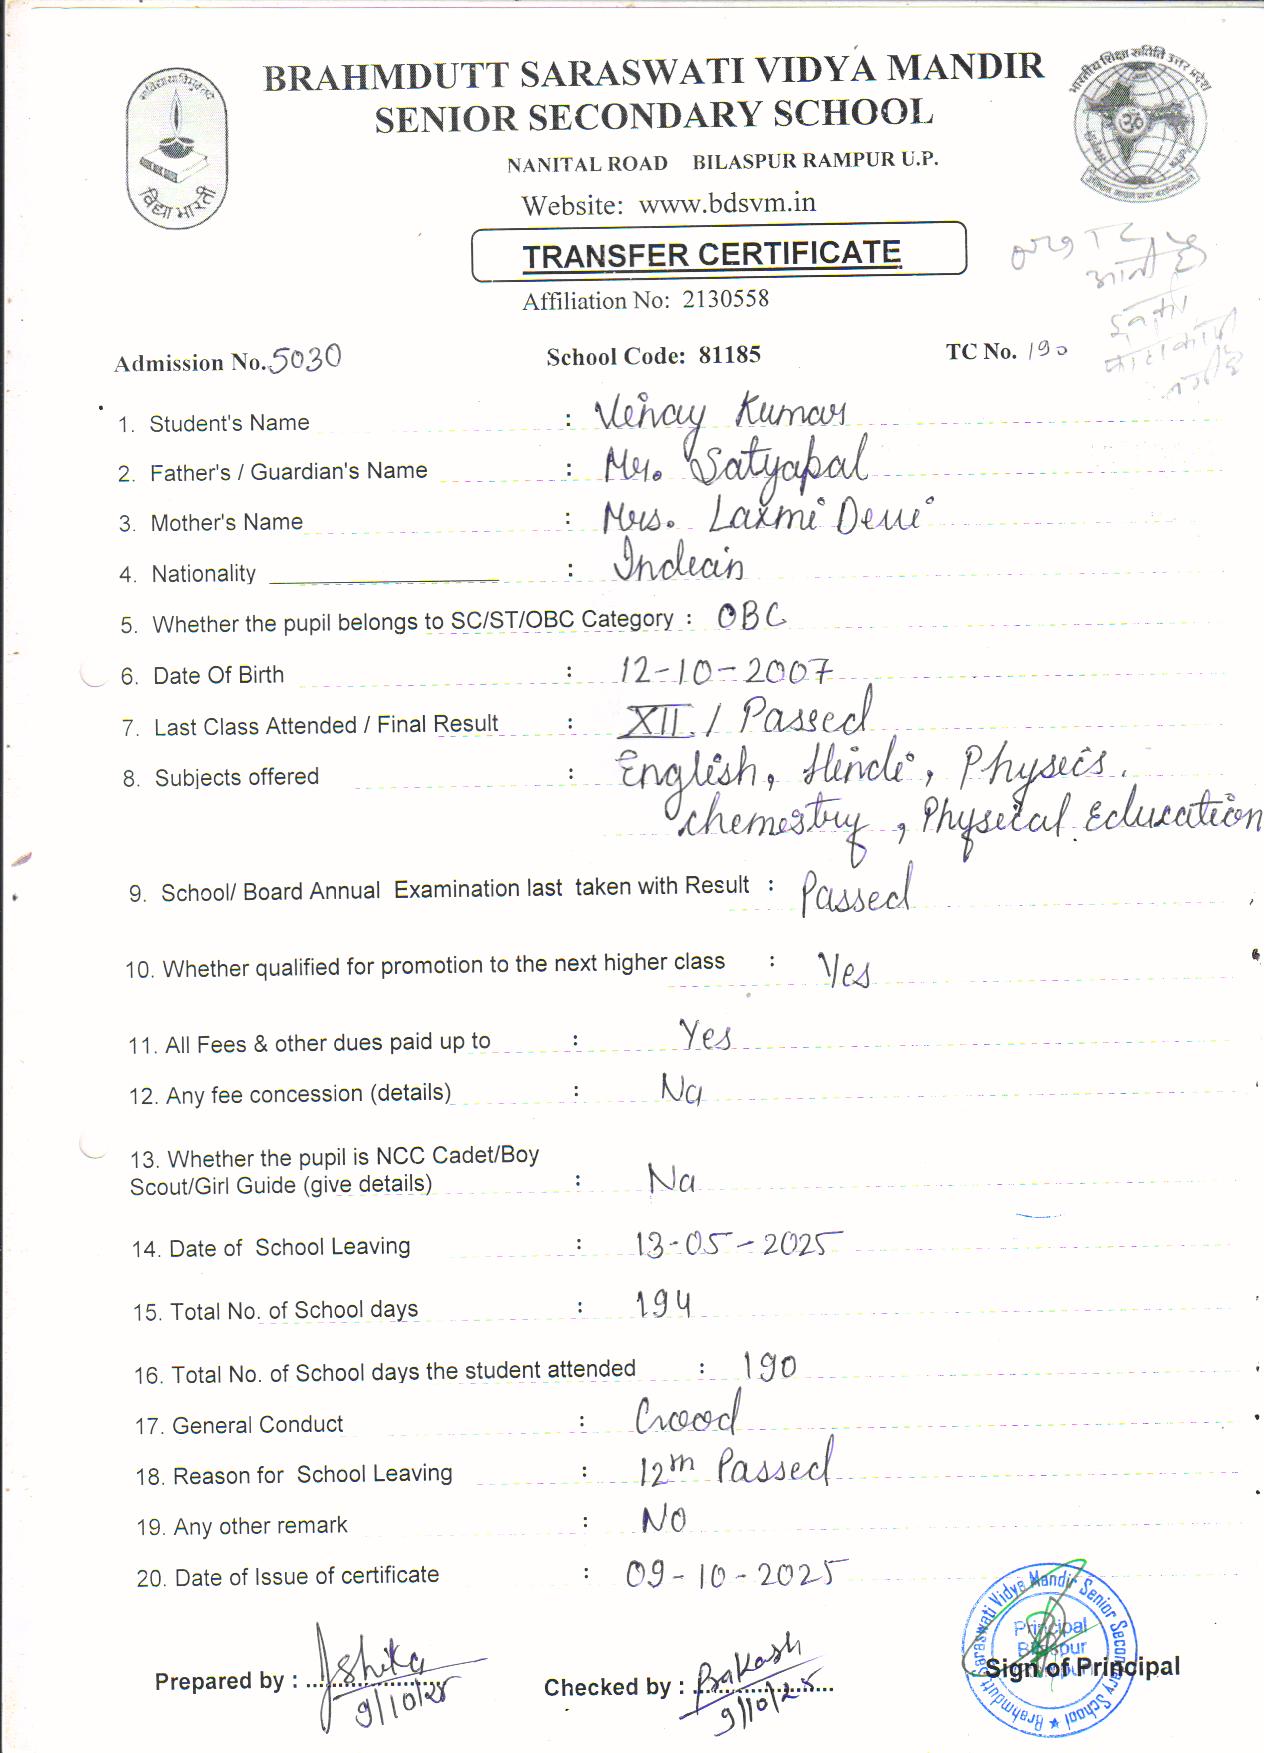 BRAHMDUTT SARASWATI VIDYA MANDIR
SENIOR SECONDARY SCHOOL
NANITAL ROAD BILASPUR RAMPUR U.P.
Website: www.bdsvm.in
TRANSFER CERTIFICATE
Affiliation No: 2130558
विद्या भारती
भारतीय शिक्षा समिति उत्तर प्रदेश
Admission No. 5030 School Code: 81185 TC No. 190
1. Student's Name : Vinay Kumar
2. Father's / Guardian's Name : Mr. Satyapal
3. Mother's Name : Mrs. Laxmi Devi
4. Nationality : Indian
5. Whether the pupil belongs to SC/ST/OBC Category : OBC
6. Date Of Birth : 12-10-2007
7. Last Class Attended / Final Result : XII / Passed
8. Subjects offered : English, Hindi, Physics.
chemestry, Physical Education
9. School/ Board Annual Examination last taken with Result : Passed
10. Whether qualified for promotion to the next higher class : Yes
11. All Fees & other dues paid up to : Yes
12. Any fee concession (details) : Na
13. Whether the pupil is NCC Cadet/Boy
Scout/Girl Guide (give details) : Na
14. Date of School Leaving : 13-05-2025
15. Total No. of School days : 194
16. Total No. of School days the student attended : 190
17. General Conduct : Good
18. Reason for School Leaving : 12th Passed
19. Any other remark : NO
20. Date of Issue of certificate : 09-10-2025
Brahmdutt Saraswati Vidya Mandir Senior Secondary School
Principal
Bilaspur
Prepared by : Ishika Checked by : Prakash Sign of Principal
9/10/25 9/10/25